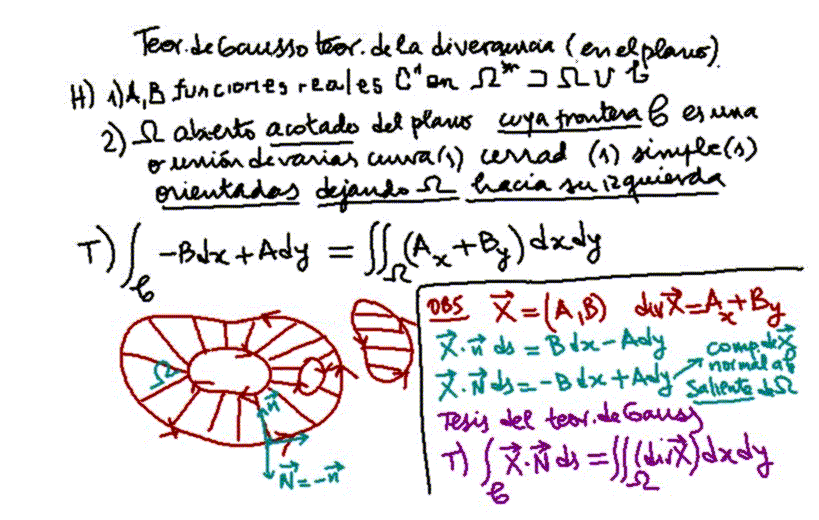 Teor. de Gauss o teor. de la divergencia (en el plano)
H) 1) A, B funciones reales C¹ en Ω* ⊃ Ω ∪ C
2) Ω abierto acotado del plano cuya frontera C es una
o unión de varias curva(s) cerrad (s) simple(s)
orientadas dejando Ω hacia su izquierda
T) ∫_C -Bdx + Ady = ∬_Ω (A_x + B_y) dxdy
Ω
n⃗
N⃗ = -n⃗
OBS X⃗ = (A, B) div X⃗ = A_x + B_y
X⃗ · n⃗ ds = B dx - A dy
X⃗ · N⃗ ds = -B dx + A dy → comp. de X⃗
normal a C
saliente de Ω
Tesis del teor. de Gauss
T) ∫_C X⃗ · N⃗ ds = ∬_Ω (div X⃗) dxdy